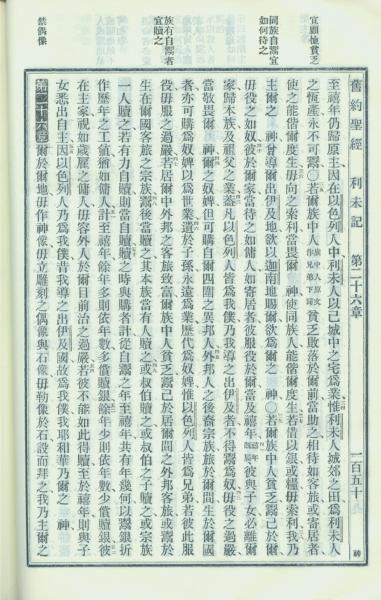 舊約聖經 利未記 第二十六章 一百五十
宜顧恤貧乏
同族自鬻宜如何待之
族有自鬻者宜贖之
禁偶像
至禧年仍歸原主因在以色列人中利未人以己城中之宅爲業惟利未人城郊之田爲利未人
之恆產永不可鬻○若爾族中人族中人原文作兄弟下同貧乏敗落於爾前當助之相待如客旅或寄居者
使之能偕爾度生毋向之索利當畏爾 神使同族人能偕爾度生若借以銀或糧毋索利我乃
主爾之 神曾導爾出伊及地欲以迦南地賜爾欲爲爾之 神○若爾族中人貧乏鬻己於爾
毋役之如奴彼於爾家當待之如傭人如寄居者彼服役於爾當及禧年屆禧年彼與子女必離爾
家歸本族及祖父之業蓋凡以色列人皆爲我僕乃我導之出伊及者不得鬻爲奴毋役之過嚴
當敬畏爾 神爾之奴婢但可購自爾四圍之異邦人外邦人之後裔宗族旅於爾間生於爾國
者亦可購爲奴婢以爲世業遺於子孫永遠爲業歷代爲奴婢惟以色列人皆爲兄弟若彼此服
役毋服之過嚴若居爾間之外邦客旅致富爾族中人貧乏鬻己於居爾間之外邦客旅或鬻於
生在爾國客旅之宗族鬻後當贖之其本族當有人贖之或叔伯贖之或叔伯之子贖之或宗族
一人贖之若有力自贖則當自贖贖之時與購者計從自鬻之年至禧年共有年幾何以鬻銀折
作歷年之工值猶如傭人計至禧年餘年多則依年數多償贖銀餘年少則依年數少償贖銀彼
在主家視如歲雇之傭人毋容外人於爾目前治之過嚴若彼不能如此得贖至於禧年則與子
女悉出自主因以色列人乃爲我僕昔我導之出伊及國故爲我僕我耶和華乃爾之 神
第二十六章 爾於爾地毋作神像毋立雕刻之偶像與石像毋勒像於石設而拜之我乃主爾之